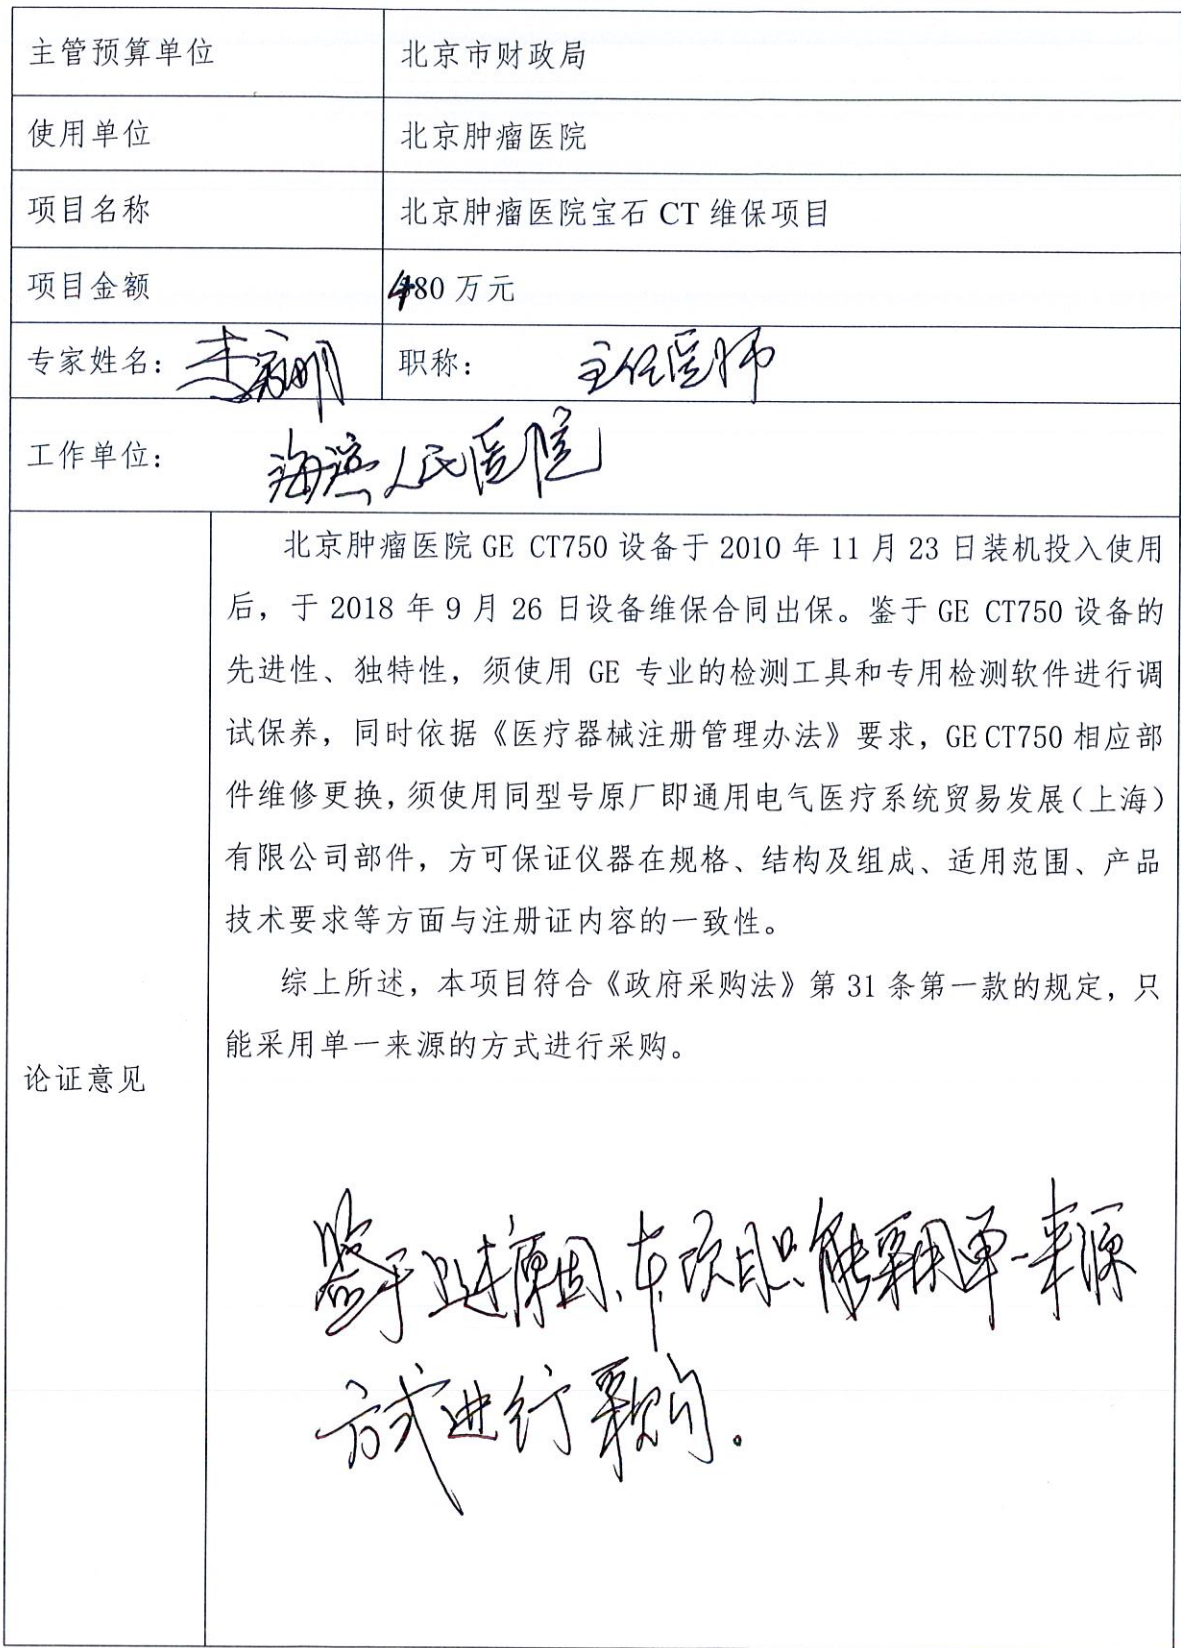 主管预算单位 北京市财政局
使用单位 北京肿瘤医院
项目名称 北京肿瘤医院宝石 CT 维保项目
项目金额 480 万元
专家姓名： 职称： 主任医师
工作单位： 人民医院
北京肿瘤医院 GE CT750 设备于 2010 年 11 月 23 日装机投入使用
后，于 2018 年 9 月 26 日设备维保合同出保。鉴于 GE CT750 设备的
先进性、独特性，须使用 GE 专业的检测工具和专用检测软件进行调
试保养，同时依据《医疗器械注册管理办法》要求，GE CT750 相应部
件维修更换，须使用同型号原厂即通用电气医疗系统贸易发展（上海）
有限公司部件，方可保证仪器在规格、结构及组成、适用范围、产品
技术要求等方面与注册证内容的一致性。
综上所述，本项目符合《政府采购法》第 31 条第一款的规定，只
能采用单一来源的方式进行采购。
论证意见
鉴于上述原因，本项目只能采用单一来源
方式进行采购。